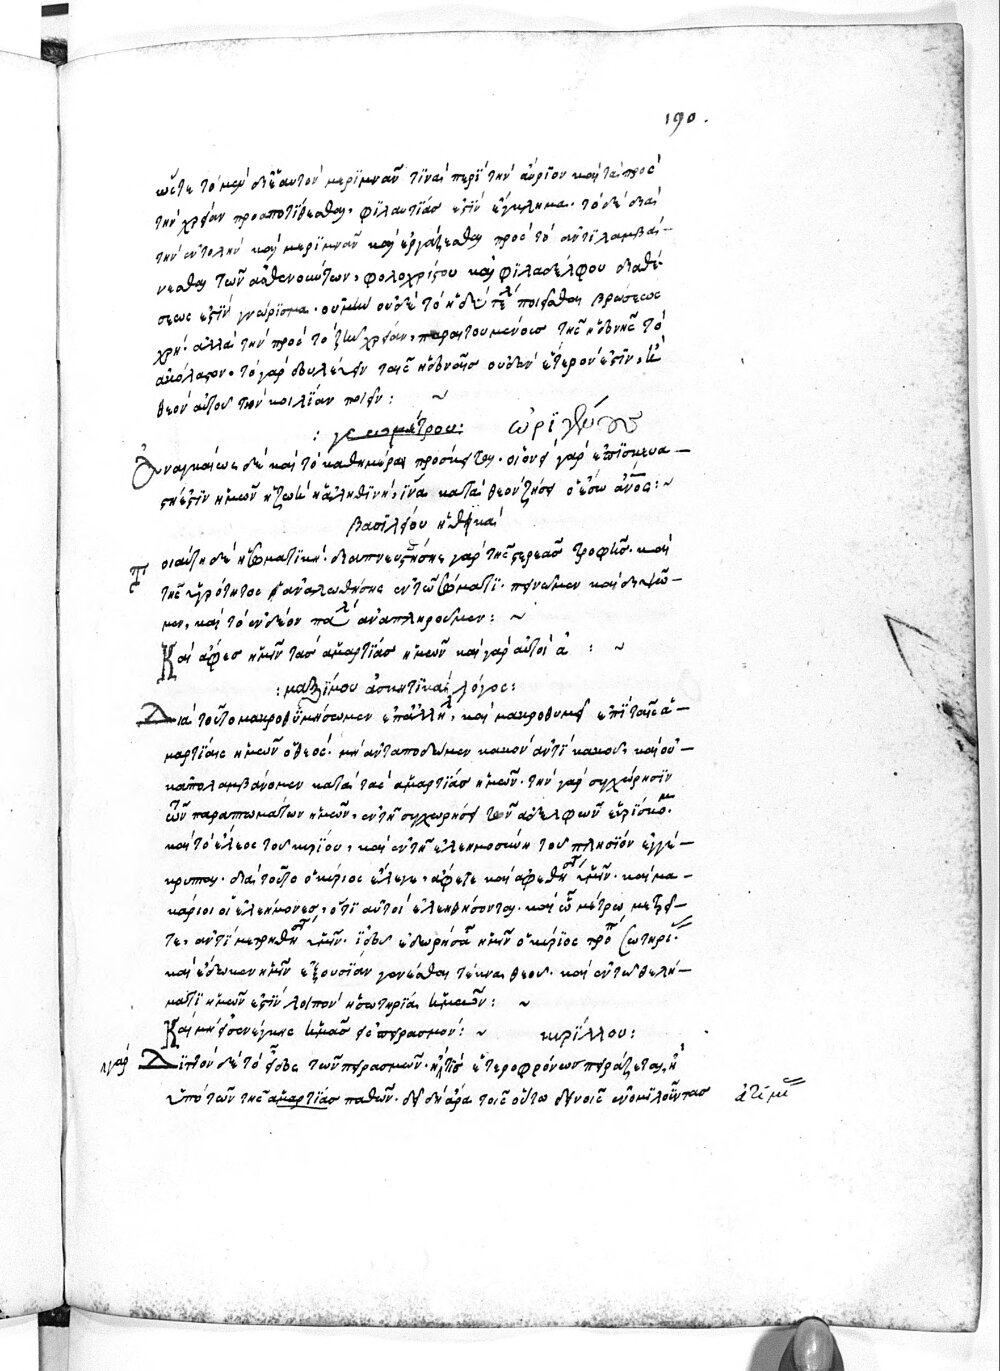 190.
ὥστε τὸ μὲν δι' ἑαυτὸν μεριμνᾶν τινὰ περὶ τὴν αὔριον καὶ τὰ πρὸς
τὴν χρείαν προαποτίθεσθαι, φιλαυτίας ἐστὶν ἔγκλημα. τὸ δὲ διὰ
τὴν ἐντολὴν καὶ μεριμνᾶν καὶ ἐργάζεσθαι πρὸς τὸ ἀντιλαμβά-
νεσθαι τῶν ἀσθενούντων, φιλοχρίστου καὶ φιλαδέλφου διαθέ-
σεως ἐστὶν γνώρισμα. οὐ μὴν οὐδὲ τὸ ἡδὺ τέλος ποιεῖσθαι βρώσεως
χρή. ἀλλὰ τὴν πρὸς τὸ ζῆν χρείαν, παραιτουμένοις τῆς ἡδονῆς τὸ
ἀκόλαστον. τὸ γὰρ δουλεύειν ταῖς ἡδοναῖς οὐδὲν ἕτερον ἐστὶν, ἢ
θεὸν αὐτοῦ τὴν κοιλίαν ποιεῖν: ~
: γεωμέτρου: ὠριγένους
Ἀναγκαίως δὲ καὶ τὸ καθημέραν προσκεῖται. οἱονεὶ γὰρ ἐπισκευα-
στή ἐστιν ἡμῶν ἡ ζωὴ ἡ ἀληθινή, ἵνα κατὰ θεὸν ζήσῃ ὁ ἔσω ἄνος: ~
βασιλείου ἠθικὰ
Τοιαύτη δὲ ἡ σωματική. διαπνευσθείσης γὰρ τῆς στερεᾶς τροφῆς. καὶ
τῆς ὑγρότητος ἀναλωθείσης ἐν τῶ σώματι. πεινῶμεν καὶ διψῶ-
μεν, καὶ τὸ ἐνδέον πάλιν ἀναπληροῦμεν: ~
Καὶ ἄφες ἡμῖν τὰς ἁμαρτίας ἡμῶν καὶ γὰρ αὐτοὶ ἀ : ~
: μαξίμου ἀσκητικὸς λόγος:
Διὰ τοῦτο μακροθυμήσωμεν ἐπ' ἀλλήλοις, καὶ μακροθυμεῖ ἐπὶ ταῖς ἁ-
μαρτίαις ἡμῶν ὁ θεός. μὴ ἀνταποδῶμεν κακὸν ἀντὶ κακοῦ, καὶ οὐ-
κ ἀπολαμβάνομεν κατὰ τὰς ἁμαρτίας ἡμῶν. τὴν γὰρ συγχώρησιν
τῶν παραπτωμάτων ἡμῶν, ἐν τῆ συγχωρήσει τῶν ἀδελφῶν εὑρίσκομεν.
καὶ τὸ ἔλεος τοῦ κυρίου, καὶ ἐν τῆ ἐλεημοσύνη τοῦ πλησίον ἐγκέ-
κρυπται. διὰ τοῦτο ὁ κύριος ἔλεγε, ἄφετε καὶ ἀφεθήσεται ὑμῖν. καὶ μα-
κάριοι οἱ ἐλεήμονες, ὅτι αὐτοὶ ἐλεηθήσονται. καὶ ὧ μέτρω μετρεῖ-
τε, ἀντιμετρηθήσεται ὑμῖν. ἰδοὺ ἐδωρήσατο ἡμῖν ὁ κύριος τρόπον σωτηρίας.
καὶ ἔδωκεν ἡμῖν ἐξουσίαν γενέσθαι τέκνα θεοῦ. καὶ ἐν τῶ θελή-
ματι ἡμῶν ἐστὶν λοιπὸν ἡ σωτηρία ἡμῶν: ~
Καὶ μὴ εἰσενέγκης ἡμᾶς εἰς πειρασμόν: ~ κυρίλλου:
Διττὸν δὲ τὸ εἶδος τῶν πειρασμῶν. ἢ τίς ἑτεροφρόνως πειράζεται, ἢ
ὑπὸ τῶν τῆς ἁμαρτίας παθῶν. δεῖ δὴ ἄρα τοῖς οὕτω δεινοῖς ἐνομιλοῦντας